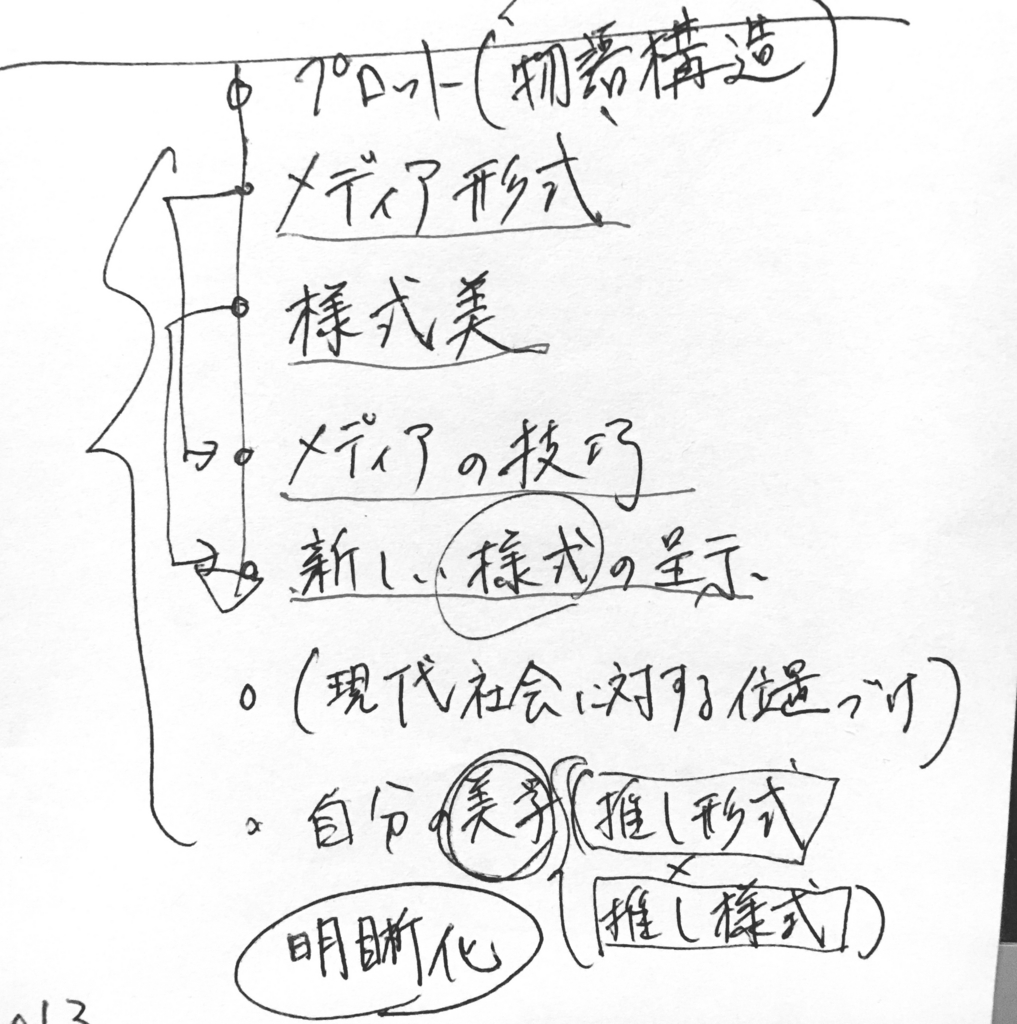 プロット(物語構造)
メディア形式
様式美
メディアの技巧
新しい様式の呈示
(現代社会に対する位置づけ)
自分の美学(推し形式
×
推し様式)
明晰化